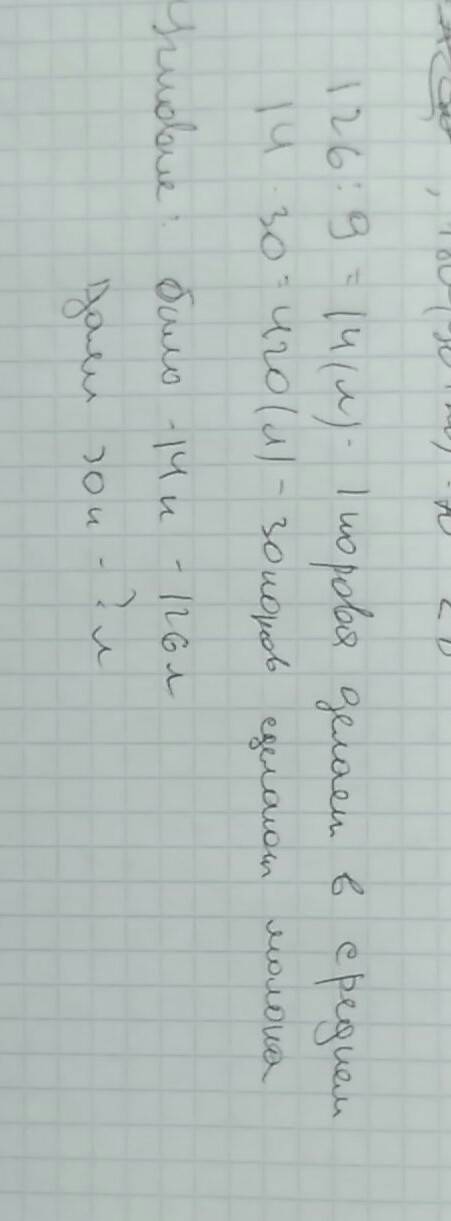 126 : 9 = 14 (л) - 1 корова делает в среднем
14 · 30 = 420 (л) - 30 коров сделают молока
Условие: было - 14 к - 126 л
30 к - ? л